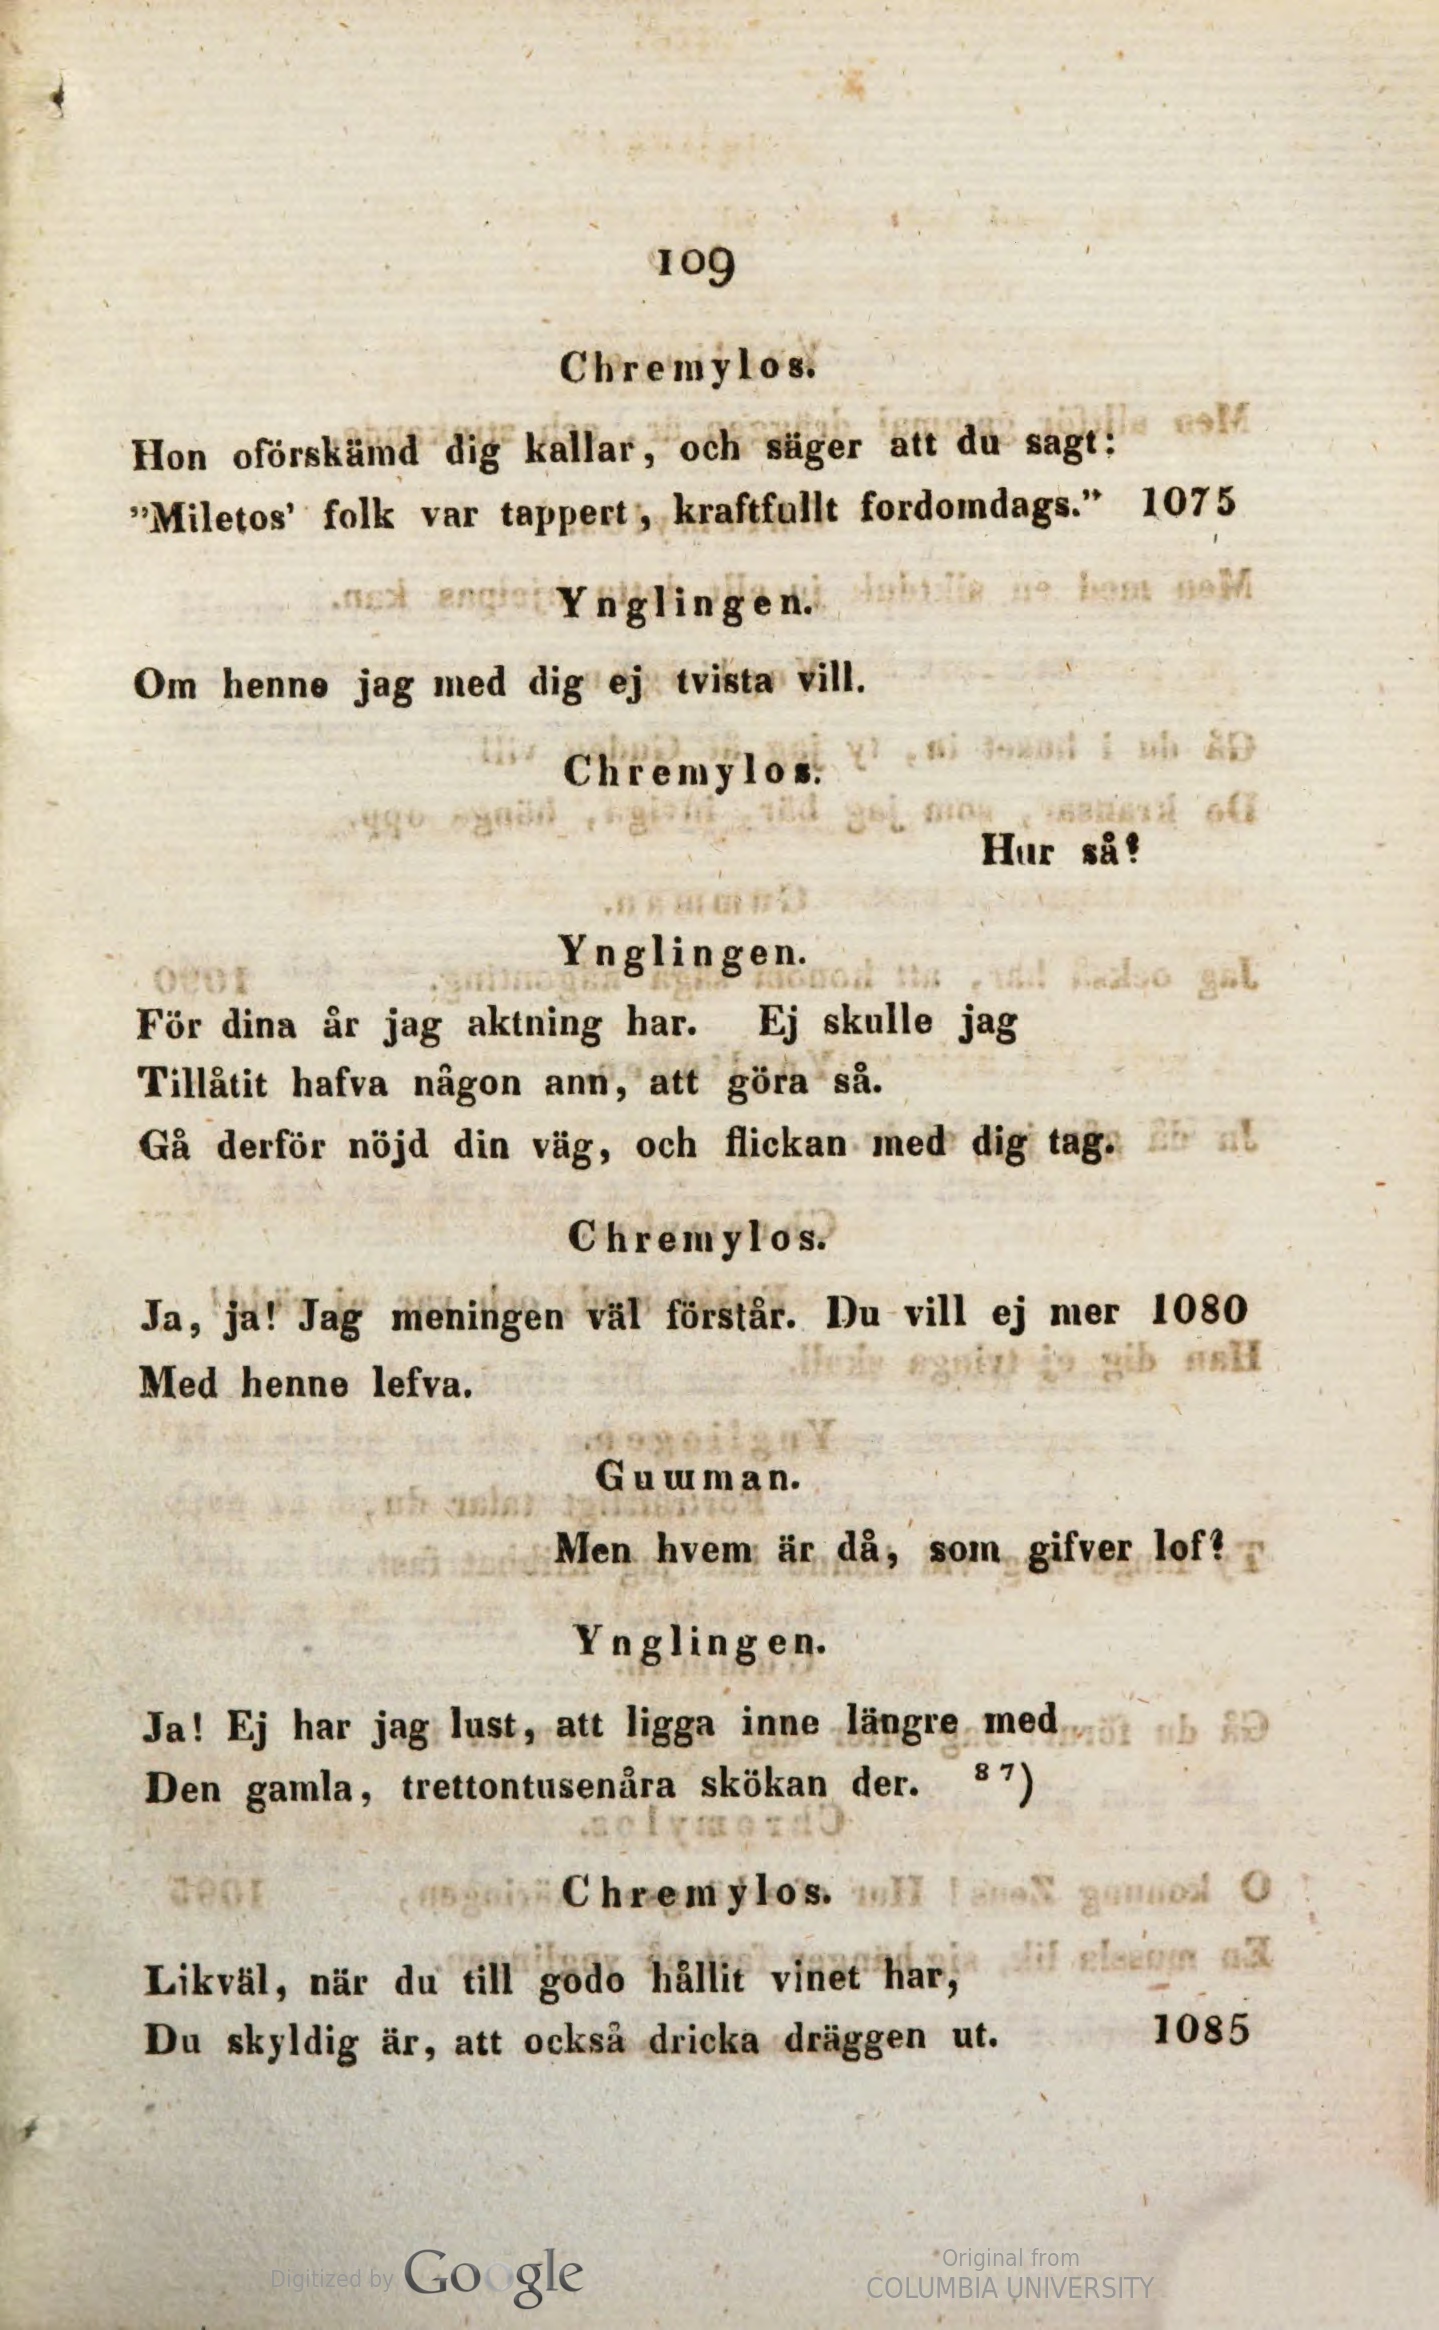 109
Chremylos.
Hon oförskämd dig kallar, och säger att du sagt:
”Miletos’ folk var tappert, kraftfullt fordomdags.” 1075
Ynglingen.
Om henne jag med dig ej tvista vill.
Chremylos.
Hur så?
Ynglingen.
För dina år jag aktning har. Ej skulle jag
Tillåtit hafva någon ann, att göra så.
Gå derför nöjd din väg, och flickan med dig tag.
Chremylos.
Ja, ja! Jag meningen väl förstår. Du vill ej mer 1080
Med henne lefva.
Gumman.
Men hvem är då, som gifver lof?
Ynglingen.
Ja! Ej har jag lust, att ligga inne längre med
Den gamla, trettontusenåra skökan der. 87)
Chremylos.
Likväl, när du till godo hållit vinet har,
Du skyldig är, att också dricka dräggen ut. 1085
Digitized by Google
Original from
COLUMBIA UNIVERSITY